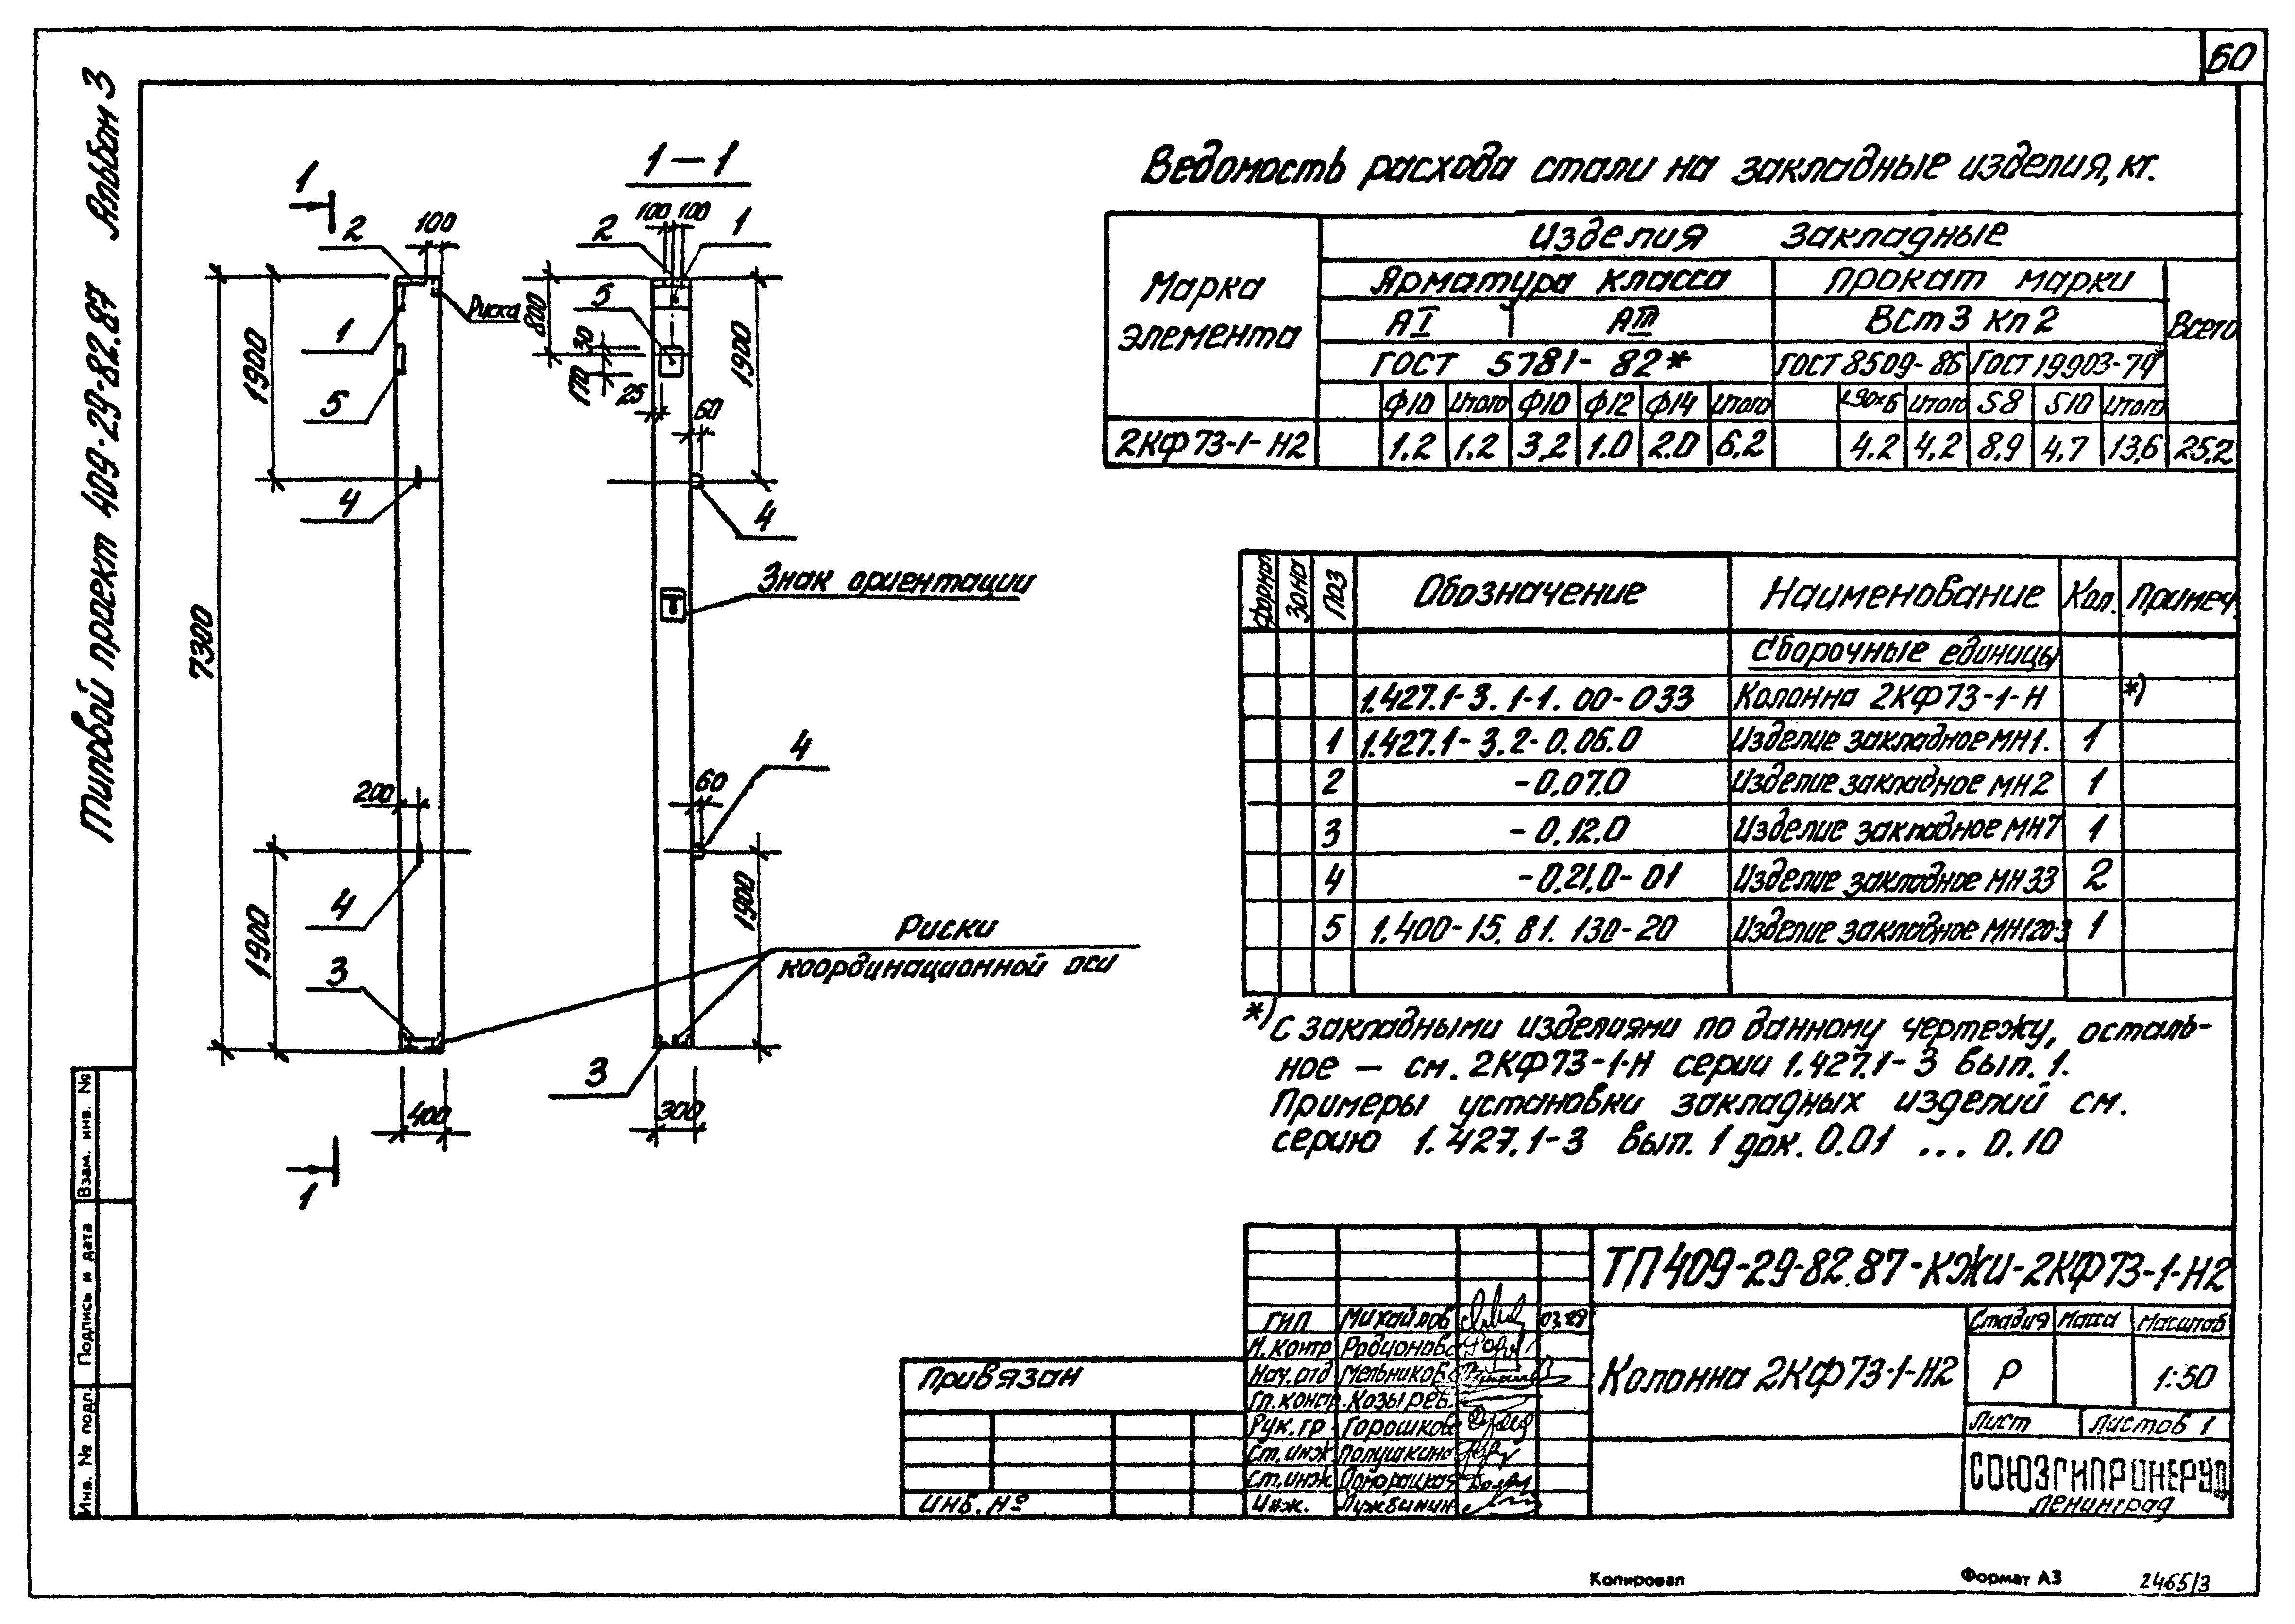 60
Типовой проект 409-29-82.87 Альбом 3
1
1-1
100
2
1
Риска
5
4
1900
7300
200
4
1900
3
400
1
100 100
2
1
5
800
30
170
25
60
1900
4
Знак ориентации
4
60
1900
Риски
координационной оси
3
300
Ведомость расхода стали на закладные изделия, кг.
Марка элемента
Изделия закладные
Арматура класса
Прокат марки
Всего
АI АIII
ВСт3 кп2
ГОСТ 5781-82*
ГОСТ 8509-86 ГОСТ 19903-74*
Ф10 Итого Ф10 Ф12 Ф14 Итого L90×6 Итого S8 S10 Итого
2КФ73-1-Н2 1.2 1.2 3,2 1.0 2.0 6.2 4.2 4.2 8.9 4,7 13,6 25.2
Формат Зона Поз Обозначение Наименование Кол. Примеч
Сборочные единицы
1.427.1-3. 1-1. 00-033 Колонна 2КФ73-1-Н *)
1 1.427.1-3.2-0.06.0 Изделие закладное МН1. 1
2 -0.07.0 Изделие закладное МН2 1
3 -0.12.0 Изделие закладное МН7 1
4 -0.21.0-01 Изделие закладное МН33 2
5 1.400-15. В1. 130-20 Изделие закладное МН120-3 1
*) С закладными изделиями по данному чертежу, осталь-
ное — см. 2КФ73-1-Н серии 1.427.1-3 вып. 1.
Примеры установки закладных изделий см.
серию 1.427.1-3 вып. 1 док. 0.01 ... 0.10
ТП 409-29-82.87-КЖИ-2КФ73-1-Н2
ГИП Михайлов
Н.контр Родионова
Нач.отд Мельников
Гл.констр. Козырев.
Рук.гр Горошкова
Ст.инж Полушкина
Ст.инж
Инж. Лужбинин
Колонна 2КФ73-1-Н2
Стадия Масса Масштаб
Р 1:50
Лист Листов 1
СОЮЗГИПРОНЕРУД
Ленинград
Привязан
Инв. №
Взам. инв. №
Подпись и дата
Инв. № подл.
Копировал
Формат А3
2465/3